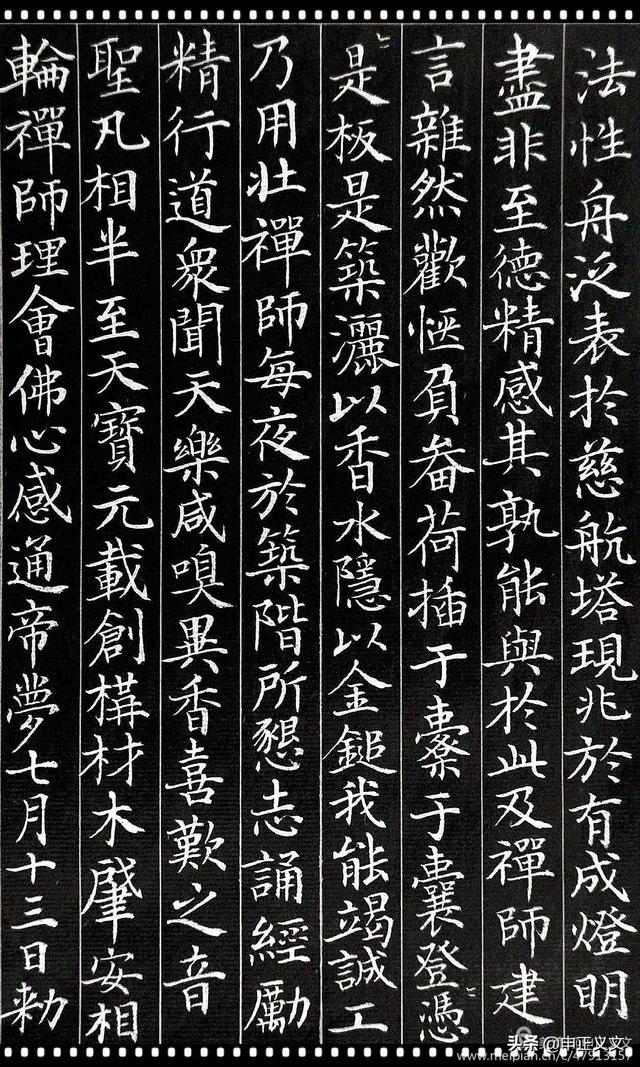 法性舟泛表於慈航塔現兆於有成燈明
盡非至德精感其孰能與於此及禪師建
言雜然歡愜負畚荷插于橐于囊登〻憑
〻是板是築灑以香水隱以金鎚我能竭誠工
乃用壯禪師每夜於築階所懇志誦經勵
精行道衆聞天樂咸嗅異香喜歎之音
聖凡相半至天寶元載創構材木肇安相
輪禪師理會佛心感通帝夢七月十三日勅
头条 @申正义文
www.meipian.cn/c/4791315